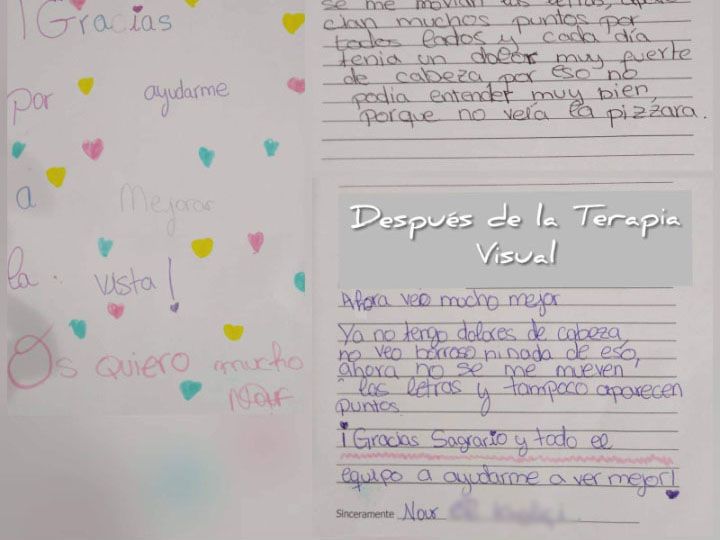 ¡Gracias
por ayudarme
a Mejorar
la vista!
Os quiero mucho
Nour
se me movían las letras,
cian muchos puntos por
todos lados y cada día
tenia un dolor muy fuerte
de cabeza por eso no
podia entender muy bien,
porque no veía la pizzara.
Después de la Terapia
Visual
Ahora veo mucho mejor
Ya no tengo dolores de cabeza,
no veo borroso ni nada de eso,
ahora no se me mueven
las letras y tampoco aparecen
puntos.
¡Gracias Sagrario y todo el
equipo a ayudarme a ver mejor!
Sinceramente Nour